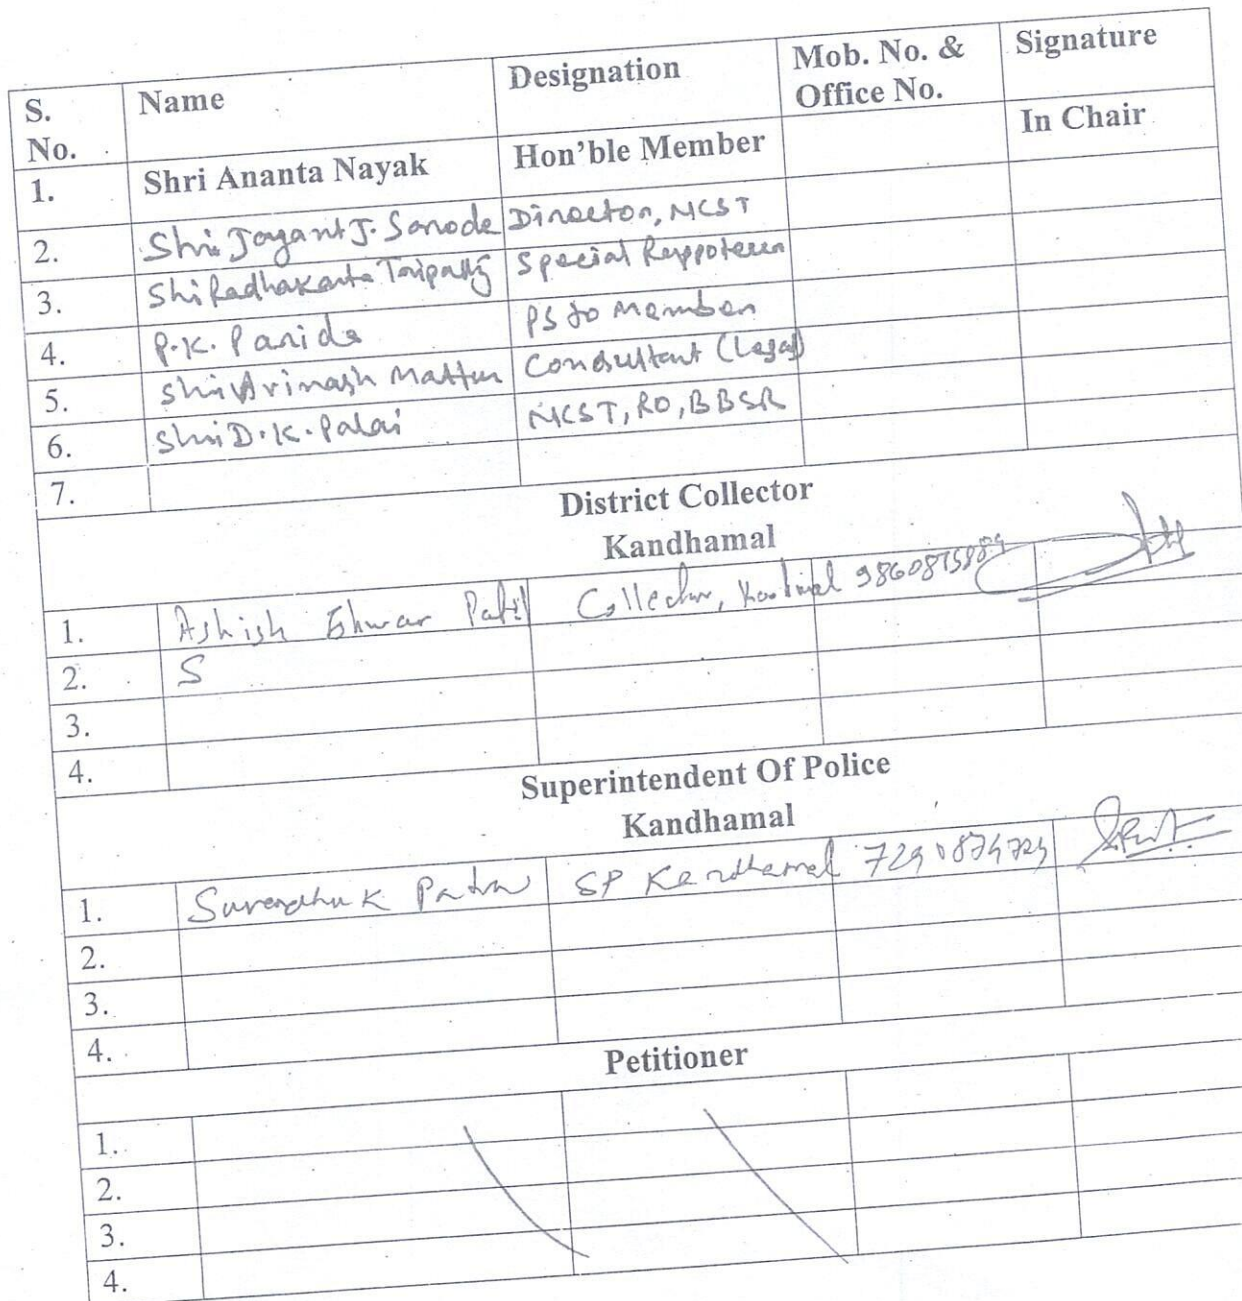 S. No. Name Designation Mob. No. & Office No. Signature
1. Shri Ananta Nayak Hon'ble Member In Chair
2. Shri Jayant J. Sarode Director, NCST
3. Shri Radhakanta Tripathy Special
4. P.K. Parida PS to Member
5. Shri Avinash Consultant (Legal)
6. Shri D.K. Palai NCST, RO, BBSR
7.
District Collector
Kandhamal
1. Ashish Ishwar Patil Collector,
2. S
3.
4.
Superintendent Of Police
Kandhamal
1. K Patra SP Kandhamal
2.
3.
4.
Petitioner
1.
2.
3.
4.